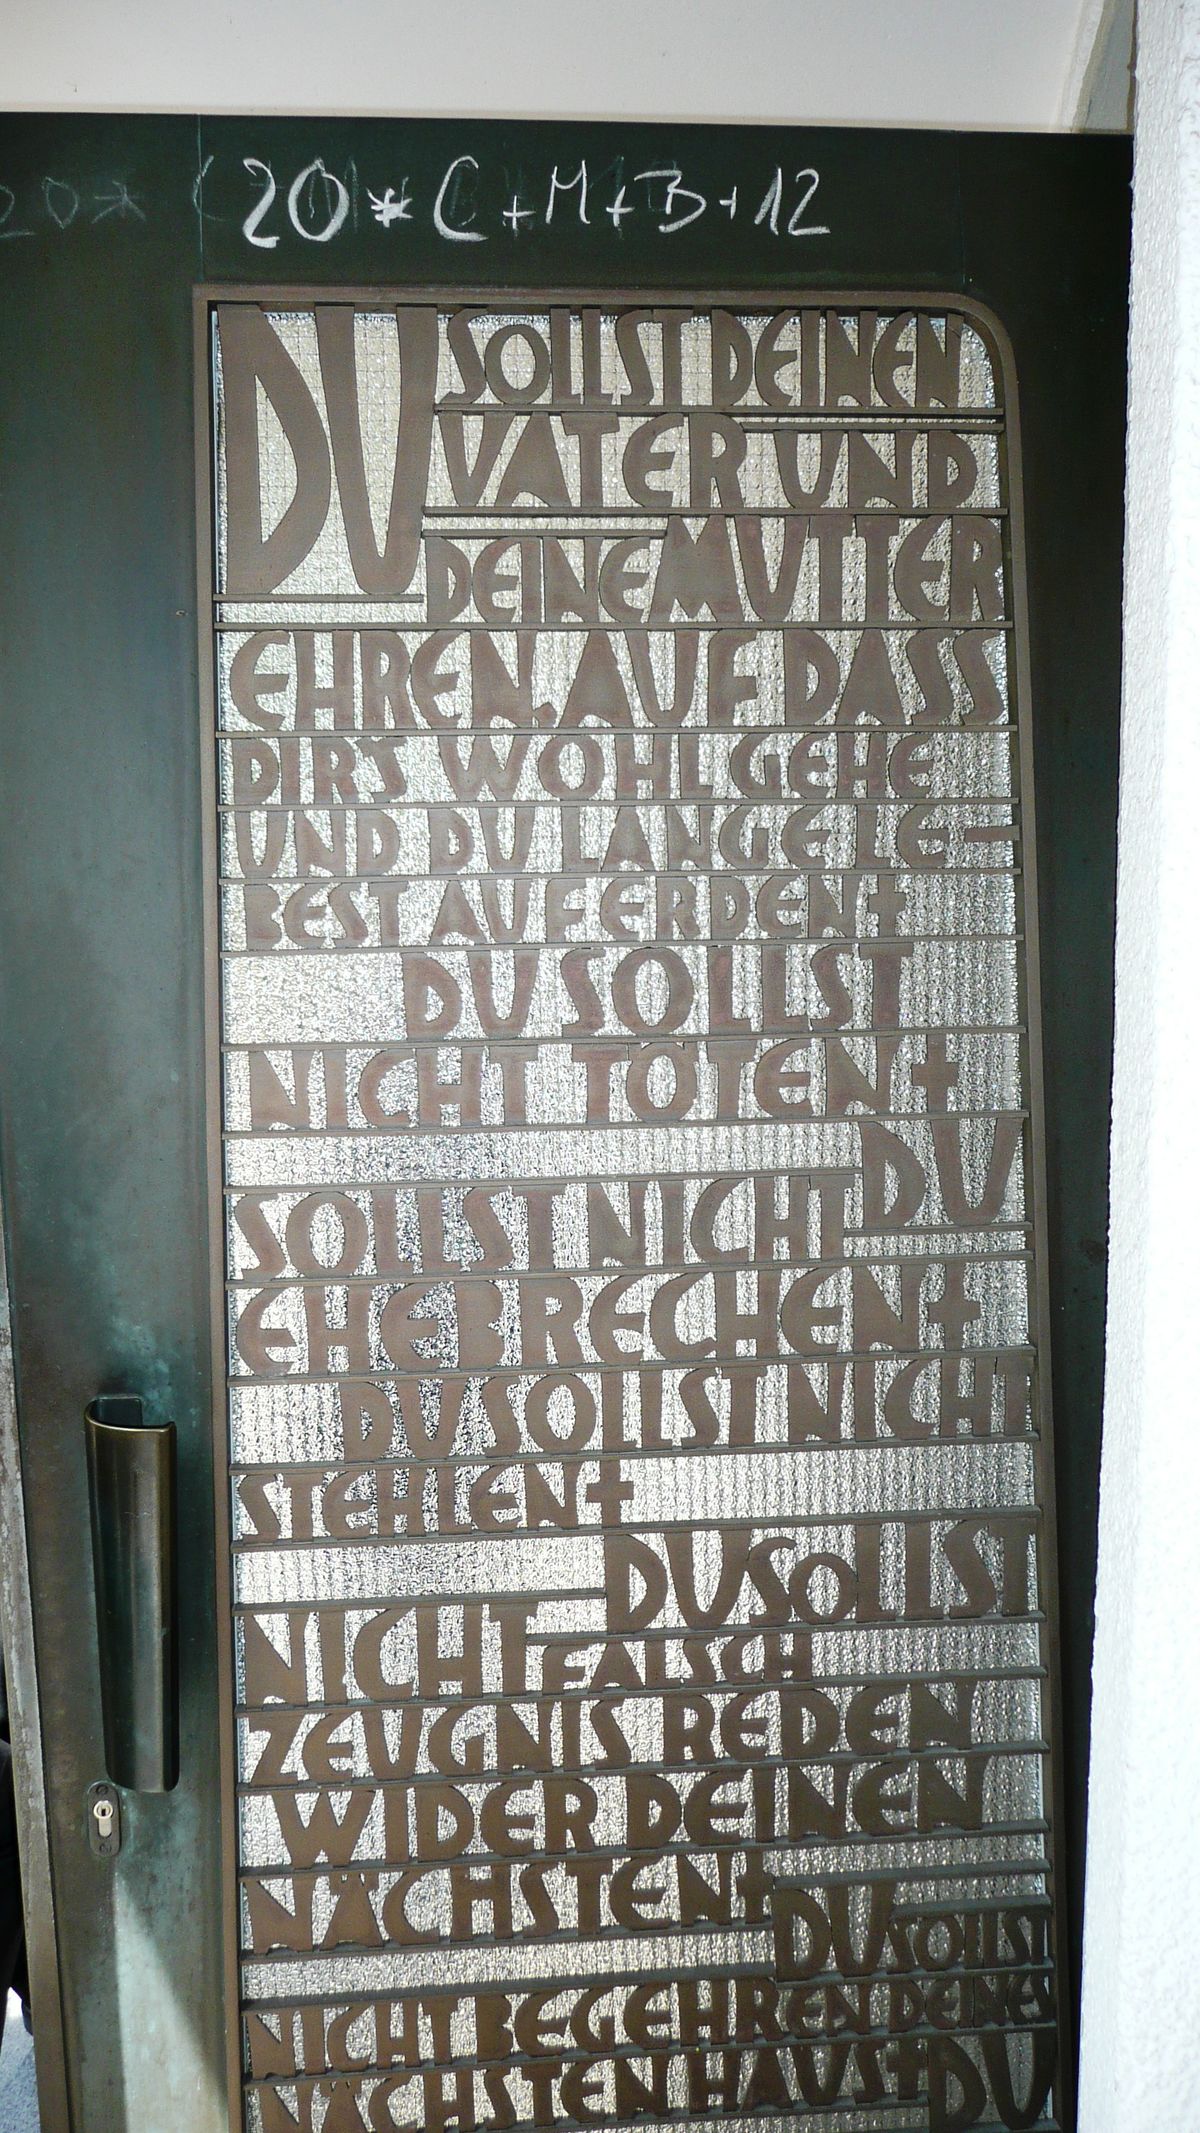 20 * C + M + B + 12
DU SOLLST DEINEN
VATER UND
DEINE MUTTER
EHREN, AUF DASS
DIR'S WOHLGEHE
UND DU LANGE LE-
BEST AUF ERDEN +
DU SOLLST
NICHT TÖTEN + DU
SOLLST NICHT
EHEBRECHEN +
DU SOLLST NICHT
STEHLEN +
DU SOLLST
NICHT FALSCH
ZEUGNIS REDEN
WIDER DEINEN
NÄCHSTEN + DU SOLLST
NICHT BEGEHREN DEINES
NÄCHSTEN HAUS + DU